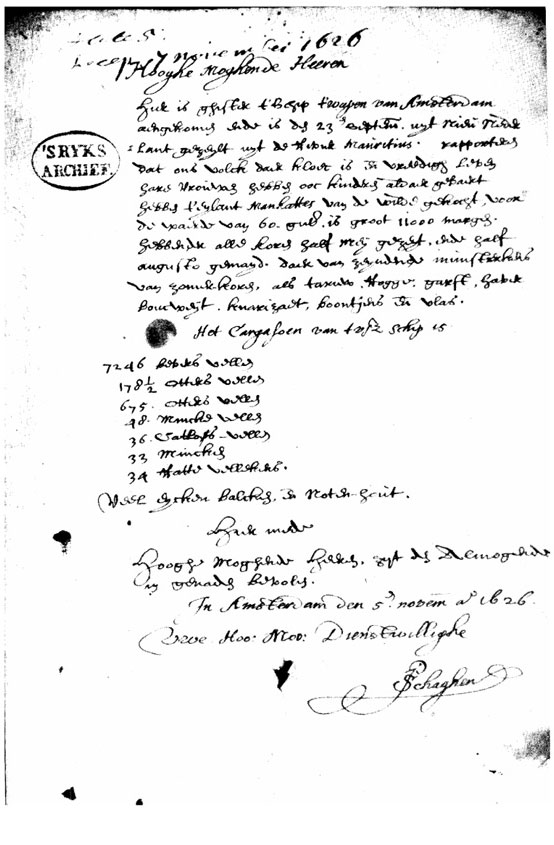 7 november 1626
Hooghe Moghende Heeren
Hier is ghister t'Schip t'wapen van Amsterdam
aengekomen ende is den 23en Septem. uyt Nieu Neder
=lant gezeylt uyt de Rivier Mauritius. rapporteren
dat ons volck daer kloec is en vreedigh leven
hare Vrouwen hebben ooc kinderen aldaer gebaert
hebben t'eylant Manhattes van de wilde gekocht, voor
de waerde van 60. guld. is groot 11000 margen.
hebbende alle koren half Mey gezeyt, ende half
augusto gemayd. daer van zeyndende munsterkens
van zomerkoren, als tarwe, Rogge, garst, haver
boucweyt, knarizaet, boontjens en vlas.
'S RYKS
ARCHIEF.
Het Cargasoen van t'vsz Schip is
7246 bevers vellen
178½ otters vellen
675. otters vellen
48. Mincke vellen
36. Catloes vellen
33 Mincken
34 Ratte vellekens.
Veel eycken balcken, en Noten-hout.
Hier mede
Hooghe Moghende Heeren, zyt den Almogende
in genaden bevolen.
In Amsterdam den 5en novem ao 1626.
Uwe Hoo: Moo: Dienstwillighe
P Schaghen